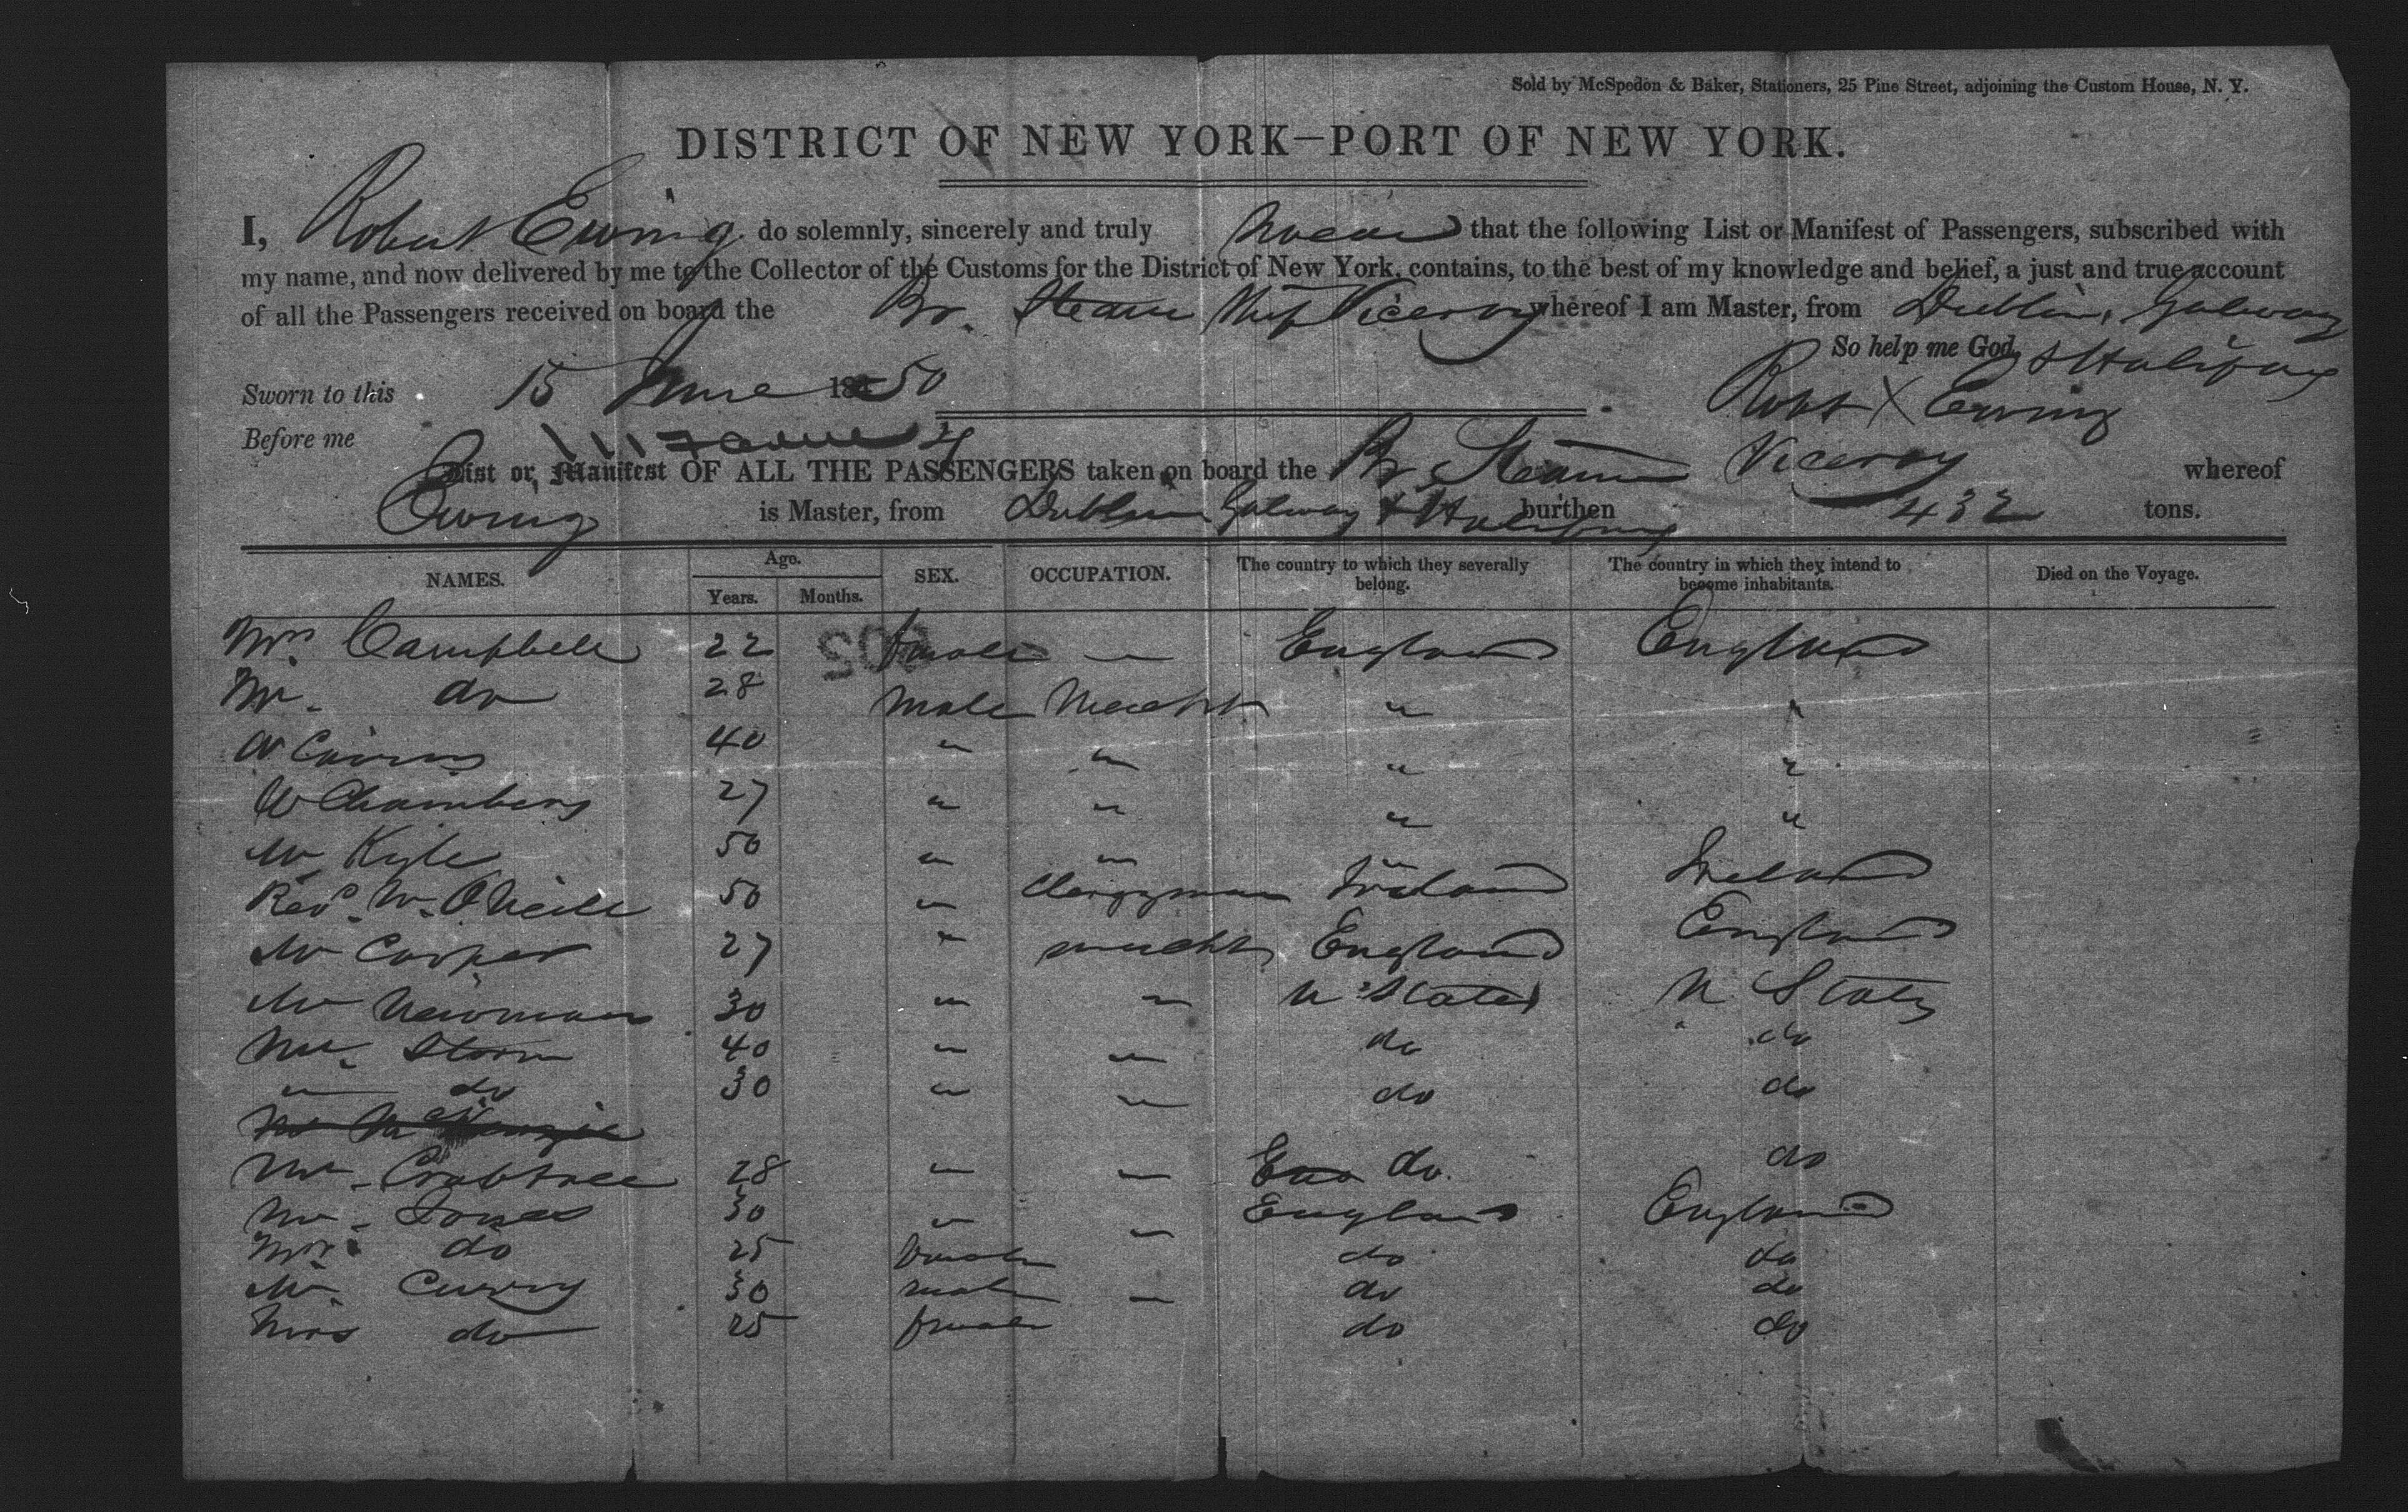 Sold by McSpedon & Baker, Stationers, 25 Pine Street, adjoining the Custom House, N. Y.
DISTRICT OF NEW YORK—PORT OF NEW YORK.
I, Robert Ewing do solemnly, sincerely and truly swear that the following List or Manifest of Passengers, subscribed with
my name, and now delivered by me to the Collector of the Customs for the District of New York, contains, to the best of my knowledge and belief, a just and true account
of all the Passengers received on board the Br. Steam Ship Viceroy whereof I am Master, from Dublin, Galway
So help me God, & Halifax
Sworn to this 15 June 1850 Robt X Ewing
Before me
List or, Manifest OF ALL THE PASSENGERS taken on board the Br. Steam Viceroy whereof
Ewing is Master, from Dublin Galway & Halifax burthen 432 tons.
NAMES. Age. Years. Months. SEX. OCCUPATION. The country to which they severally belong. The country in which they intend to become inhabitants. Died on the Voyage.
Mrs Campbell 22 female — England England
Mr. do 28 Male Mercht " "
W Cairns 40 " " " "
W Chambers 27 " " " "
Mr Kyle 50 " " "
Revd. Mr. O'Neill 50 " Clergyman Ireland Ireland
Mr Cooper 27 " mercht England England
Mr Newman 30 " " U States U States
Mr. Storm 40 " " do do
" do 30 " " do do
Mr. Crabtree 28 " " do. do
Mr. Jones 30 " " England England
Mrs do 25 female do do
Mr. Curry 30 male — do do
Mrs do 25 female do do